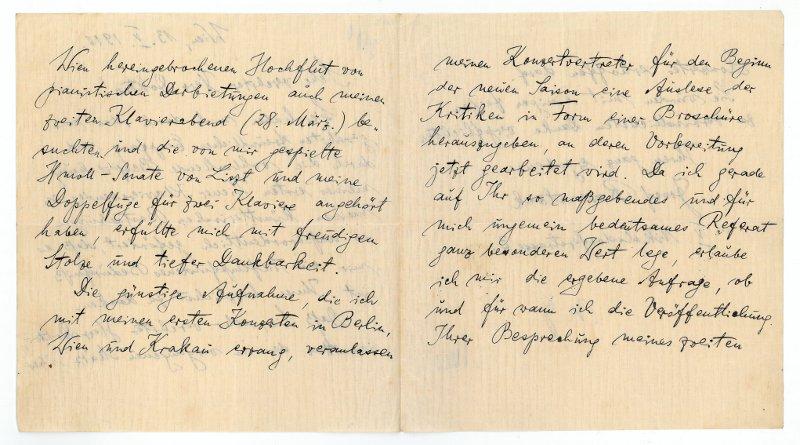 Wien hereingebrochenen Hochflut von
pianistischen Darbietungen auch meinen
zweiten Klavierabend (28. März.) be-
suchten und die von mir gespielte
Hmoll-Sonate von Liszt und meine
Doppelfuge für zwei Klaviere angehört
haben, erfüllte mich mit freudigem
Stolze und tiefer Dankbarkeit.
Die günstige Aufnahme, die ich
mit meinen ersten Konzerten in Berlin,
Wien und Krakau errang, veranlassen
meinen Konzertvertreter für den Beginn
der neuen Saison eine Auslese der
Kritiken in Form einer Broschüre
herauszugeben, an deren Vorbereitung
jetzt gearbeitet wird. Da ich gerade
auf Ihr so maßgebendes und für
mich ungemein bedeutsames Referat
ganz besonderen Wert lege, erlaube
ich mir die ergebene Anfrage, ob
und für wann ich die Veröffentlichung
Ihrer Besprechung meines zweiten